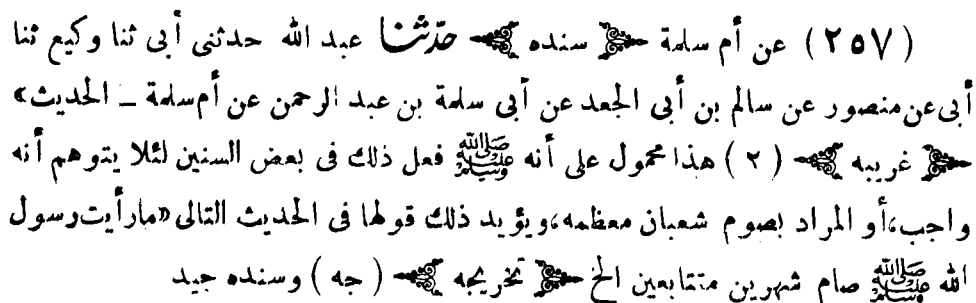 (٢٥٧) عن أم سلمة ﴿ سنده ﴾ حدثنا عبد الله حدثنى أبى ثنا وكيع ثنا
أبى عن منصور عن سالم بن أبى الجعد عن أبى سلمة بن عبد الرحمن عن أم سلمة ــ الحديث»
﴿ غريبه ﴾ (٢) هذا محمول على أنه ﷺ فعل ذلك فى بعض السنين لئلا يتوهم أنه
واجب، أو المراد بصوم شعبان معظمه، ويؤيد ذلك قولها فى الحديث التالى «مارأيت رسول
الله ﷺ صام شهرين متتابعين الخ ﴿ تخريجه ﴾ (جه) وسنده جيد